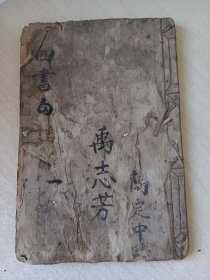 四書白
一
禹志芳
陶定中